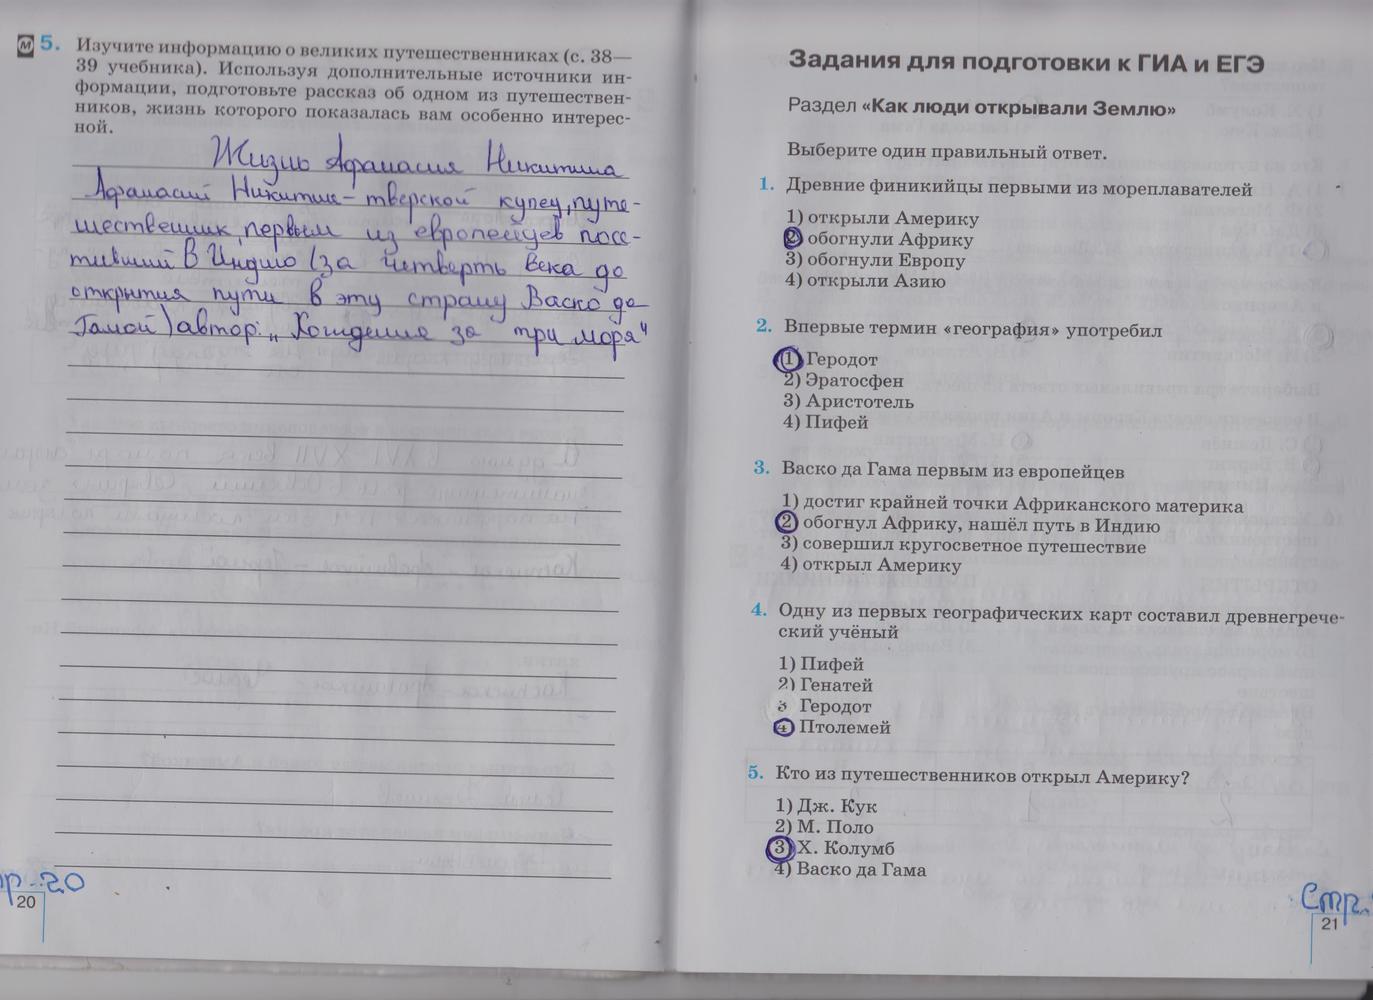 м 5. Изучите информацию о великих путешественниках (с. 38—
39 учебника). Используя дополнительные источники ин-
формации, подготовьте рассказ об одном из путешествен-
ников, жизнь которого показалась вам особенно интерес-
ной.
Жизнь Афанасия Никитина
Афанасий Никитин - тверской купец, путе-
шественник, первым из европейцев посе-
тивший в Индию (за четверть века до
открытия пути в эту страну Васко да
Гамой) автор: „Хождения за три моря"
20
Задания для подготовки к ГИА и ЕГЭ
Раздел «Как люди открывали Землю»
Выберите один правильный ответ.
1. Древние финикийцы первыми из мореплавателей
1) открыли Америку
2) обогнули Африку
3) обогнули Европу
4) открыли Азию
2. Впервые термин «география» употребил
1) Геродот
2) Эратосфен
3) Аристотель
4) Пифей
3. Васко да Гама первым из европейцев
1) достиг крайней точки Африканского материка
2) обогнул Африку, нашёл путь в Индию
3) совершил кругосветное путешествие
4) открыл Америку
4. Одну из первых географических карт составил древнегрече-
ский учёный
1) Пифей
2) Генатей
3 Геродот
4) Птолемей
5. Кто из путешественников открыл Америку?
1) Дж. Кук
2) М. Поло
3) Х. Колумб
4) Васко да Гама
р. 20
Стр.
21